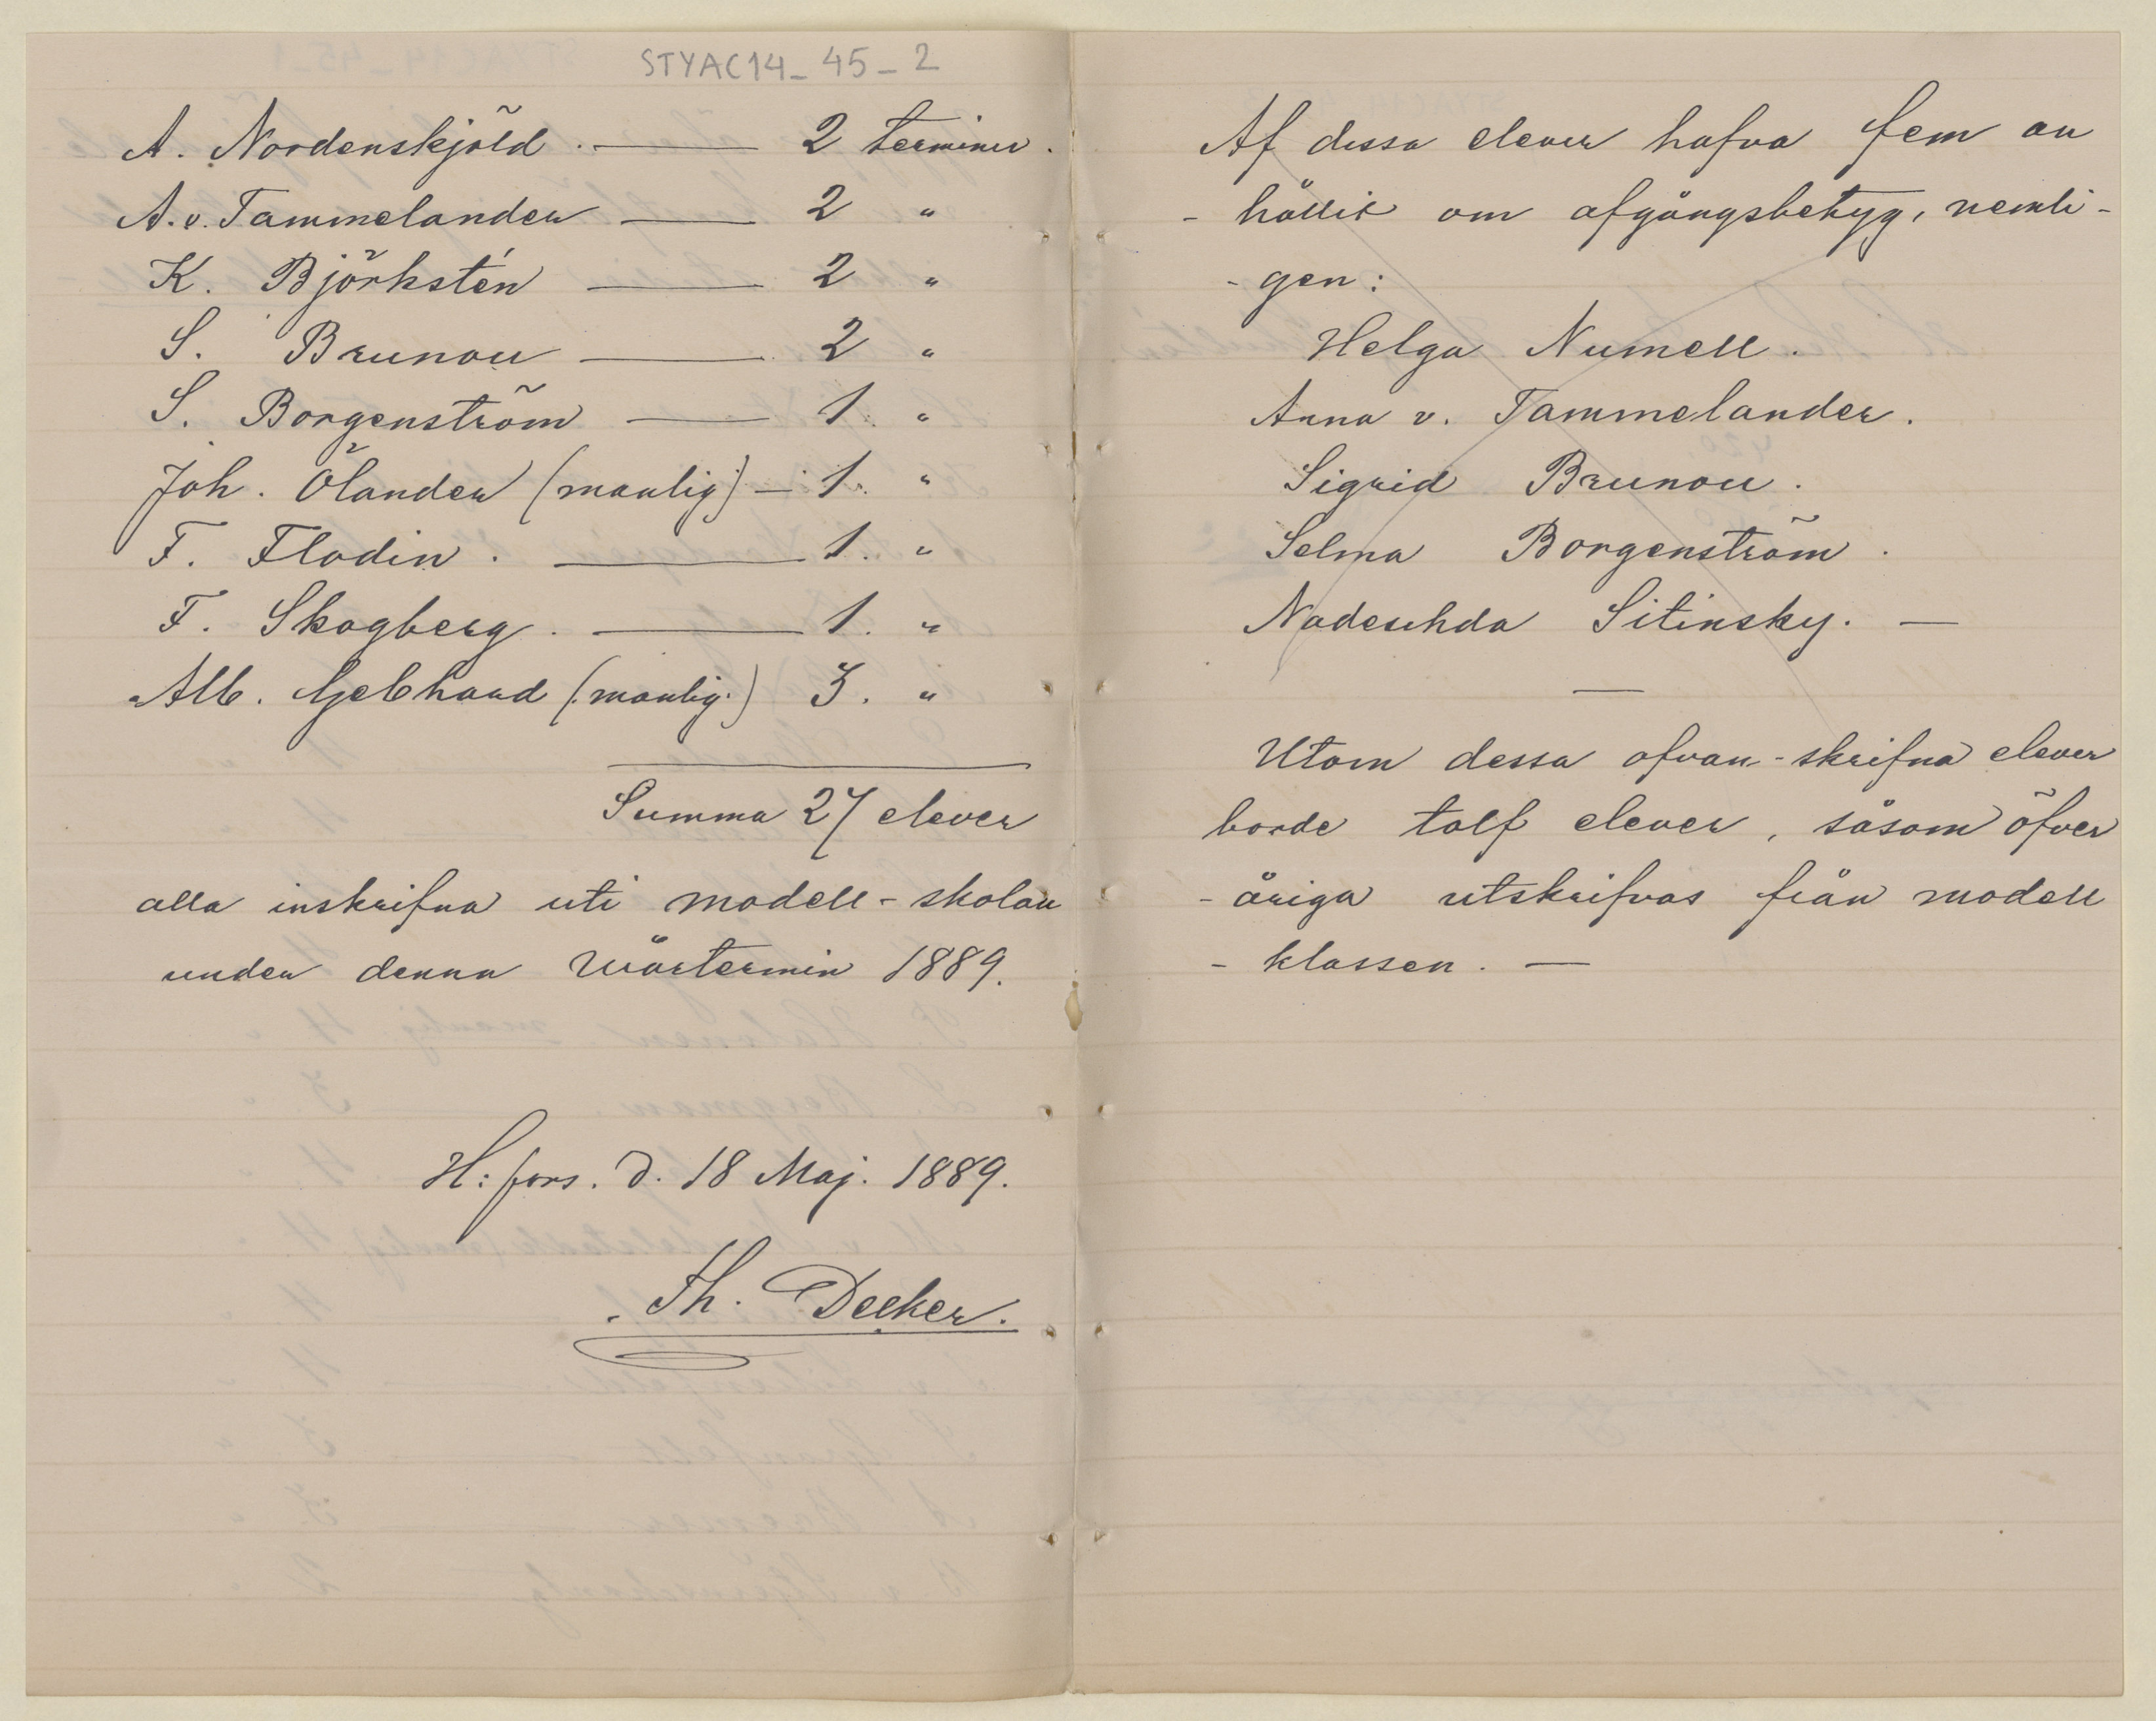 STYAC14_45_2
A. Nordenskjöld. — 2 terminer.
A. v. Tammelander — 2 "
K. Björkstén — 2 "
S. Brunou — 2 "
S. Borgenström — 1. "
Joh. Ölander (manlig) — 1. "
F. Flodin. — 1. "
F. Skogberg. — 1. "
Alb. Gebhard (manlig.) 3. "
Summa 27 elever
alla inskrifna uti modell-skolan
under denna Wårtermin 1889.
H:fors. d. 18 Maj. 1889.
Th. Decker.
Af dessa elever hafva fem an
-hållit om afgångsbetyg, nemli-
-gen:
Helga Numell.
Anna v. Tammelander.
Sigrid Brunou.
Selma Borgenström.
Nadeschda Sitinsky. —
—
Utom dessa ofvan-skrifna elever
borde tolf elever, såsom öfver
-åriga utskrifvas från modell
-klassen. —